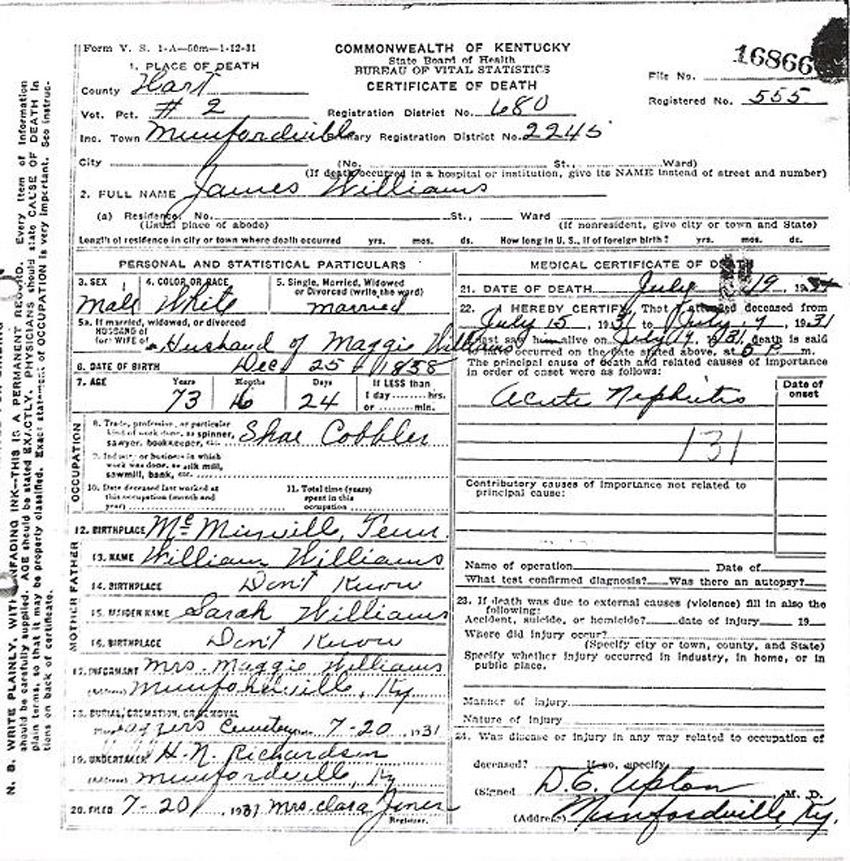 Form V. S. 1-A—50m—1-12-31
COMMONWEALTH OF KENTUCKY
State Board of Health
BUREAU OF VITAL STATISTICS
CERTIFICATE OF DEATH
File No. 16866
Registered No. 555
1. PLACE OF DEATH
County Hart
Vot. Pct. # 2
Registration District No. 680
Inc. Town Munfordville
Primary Registration District No. 2245
City (No. St., Ward)
(If death occurred in a hospital or institution, give its NAME instead of street and number)
2. FULL NAME James Williams
(a) Residence. No. St., Ward
(Usual place of abode) (If nonresident, give city or town and State)
Length of residence in city or town where death occurred yrs. mos. ds. How long in U. S., if of foreign birth? yrs. mos. ds.
PERSONAL AND STATISTICAL PARTICULARS
3. SEX 4. COLOR OR RACE 5. Single, Married, Widowed
or Divorced (write the word)
Male White married
5a. If married, widowed, or divorced
HUSBAND of
(or) WIFE of Husband of Maggie Williams
6. DATE OF BIRTH Dec 25 - 1858
7. AGE Years Months Days If LESS than
1 day hrs.
or min.
73 6 24
OCCUPATION
8. Trade, profession, or particular
kind of work done, as spinner,
sawyer, bookkeeper, etc. Shoe Cobbler
9. Industry or business in which
work was done, as silk mill,
sawmill, bank, etc.
10. Date deceased last worked at
this occupation (month and
year)
11. Total time (years)
spent in this
occupation
12. BIRTHPLACE Mc Minville, Tenn.
FATHER
13. NAME William Williams
14. BIRTHPLACE Don't Know
MOTHER
15. MAIDEN NAME Sarah Williams
16. BIRTHPLACE Don't Know
17. INFORMANT Mrs. Maggie Williams
(Address) Munfordville, Ky
18. BURIAL, CREMATION, OR REMOVAL
Cemetery 7-20 1931
19. UNDERTAKER H. N. Richardson
(Address) Munfordville, Ky
20. FILED 7-20, 1931 Mrs. Clara Jones
Registrar.
MEDICAL CERTIFICATE OF DEATH
21. DATE OF DEATH July 19, 19
22. I HEREBY CERTIFY, That I attended deceased from
July 15, 1931 to July 19, 1931
I last saw him alive on July 19, 1931, death is said
to have occurred on the date stated above, at m.
The principal cause of death and related causes of importance
in order of onset were as follows:
Date of
onset
Acute Nephritis
131
Contributory causes of importance not related to
principal cause:
Name of operation Date of
What test confirmed diagnosis? Was there an autopsy?
23. If death was due to external causes (violence) fill in also the
following:
Accident, suicide, or homicide? date of injury 19
Where did injury occur?
(Specify city or town, county, and State)
Specify whether injury occurred in industry, in home, or in
public place.
Manner of injury
Nature of injury
24. Was disease or injury in any way related to occupation of
deceased? If so, specify
(Signed) D. E. Upton M. D.
(Address) Munfordville Ky.
N. B. WRITE PLAINLY, WITH UNFADING INK—THIS IS A PERMANENT RECORD. Every item of information
should be carefully supplied. AGE should be stated EXACTLY. PHYSICIANS should state CAUSE OF DEATH in
plain terms, so that it may be properly classified. Exact statement of OCCUPATION is very important. See instruc-
tions on back of certificate.